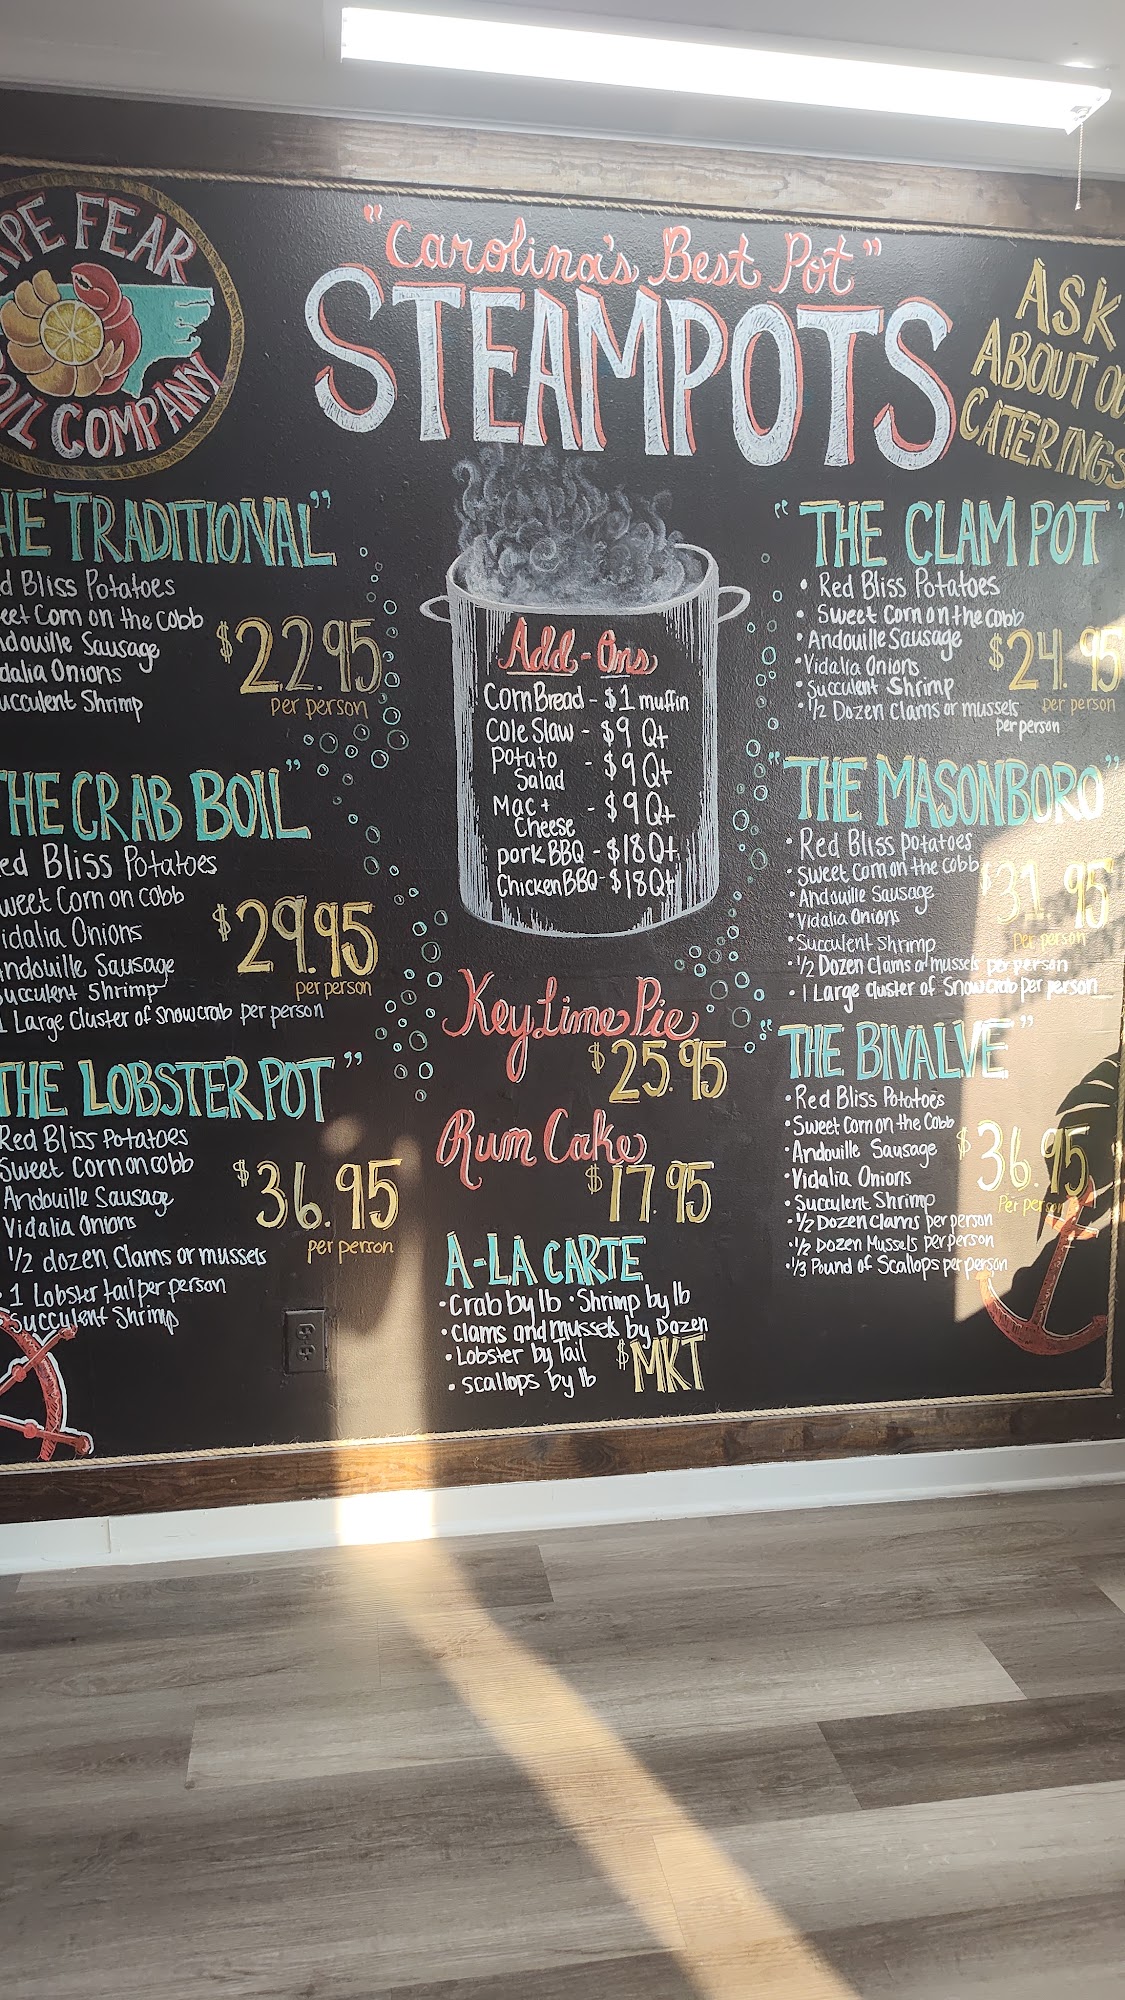 PE FEAR
OIL COMPANY
"Carolina's Best Pot"
STEAMPOTS
ASK
ABOUT OU
CATERINGS
HE TRADITIONAL"
d Bliss Potatoes
eet Corn on the cobb
ndouille Sausage
dalia Onions
ucculent Shrimp
$22.95
per person
THE CRAB BOIL"
ed Bliss Potatoes
weet Corn on cobb
idalia Onions
Andouille Sausage
Succulent Shrimp
1 Large Cluster of snowcrab per person
$29.95
per person
THE LOBSTER POT"
Red Bliss Potatoes
Sweet Corn on cobb
Andouille Sausage
Vidalia Onions
1/2 dozen Clams or mussels
• 1 Lobster tail per person
Succulent Shrimp
$36.95
per person
Add-Ons
Corn Bread - $1 muffin
Cole Slaw - $9 Qt
Potato
Salad - $9 Qt
Mac +
Cheese - $9 Qt
pork BBQ - $18 Qt
Chicken BBQ - $18 Qt
Key Lime Pie
$25.95
Rum Cake
$17.95
A-LA CARTE
• Crab by lb • Shrimp by lb
• Clams and mussels by Dozen
• Lobster by Tail
• scallops by lb
$MKT
"THE CLAM POT"
• Red Bliss Potatoes
• Sweet Corn on the cobb
• Andouille Sausage
• Vidalia Onions
• Succulent Shrimp
• 1/2 Dozen Clams or mussels
per person
$24.95
per person
"THE MASONBORO"
• Red Bliss potatoes
• Sweet Corn on the cobb
• Andouille Sausage
• Vidalia Onions
• Succulent Shrimp
• 1/2 Dozen Clams or mussels per person
• 1 Large Cluster of Snowcrab per person
$31.95
per person
"THE BIVALVE"
• Red Bliss Potatoes
• Sweet Corn on the Cobb
• Andouille Sausage
• Vidalia Onions
• Succulent Shrimp
• 1/2 Dozen Clams per person
• 1/2 Dozen Mussels per person
• 1/3 Pound of Scallops per person
$36.95
Per person